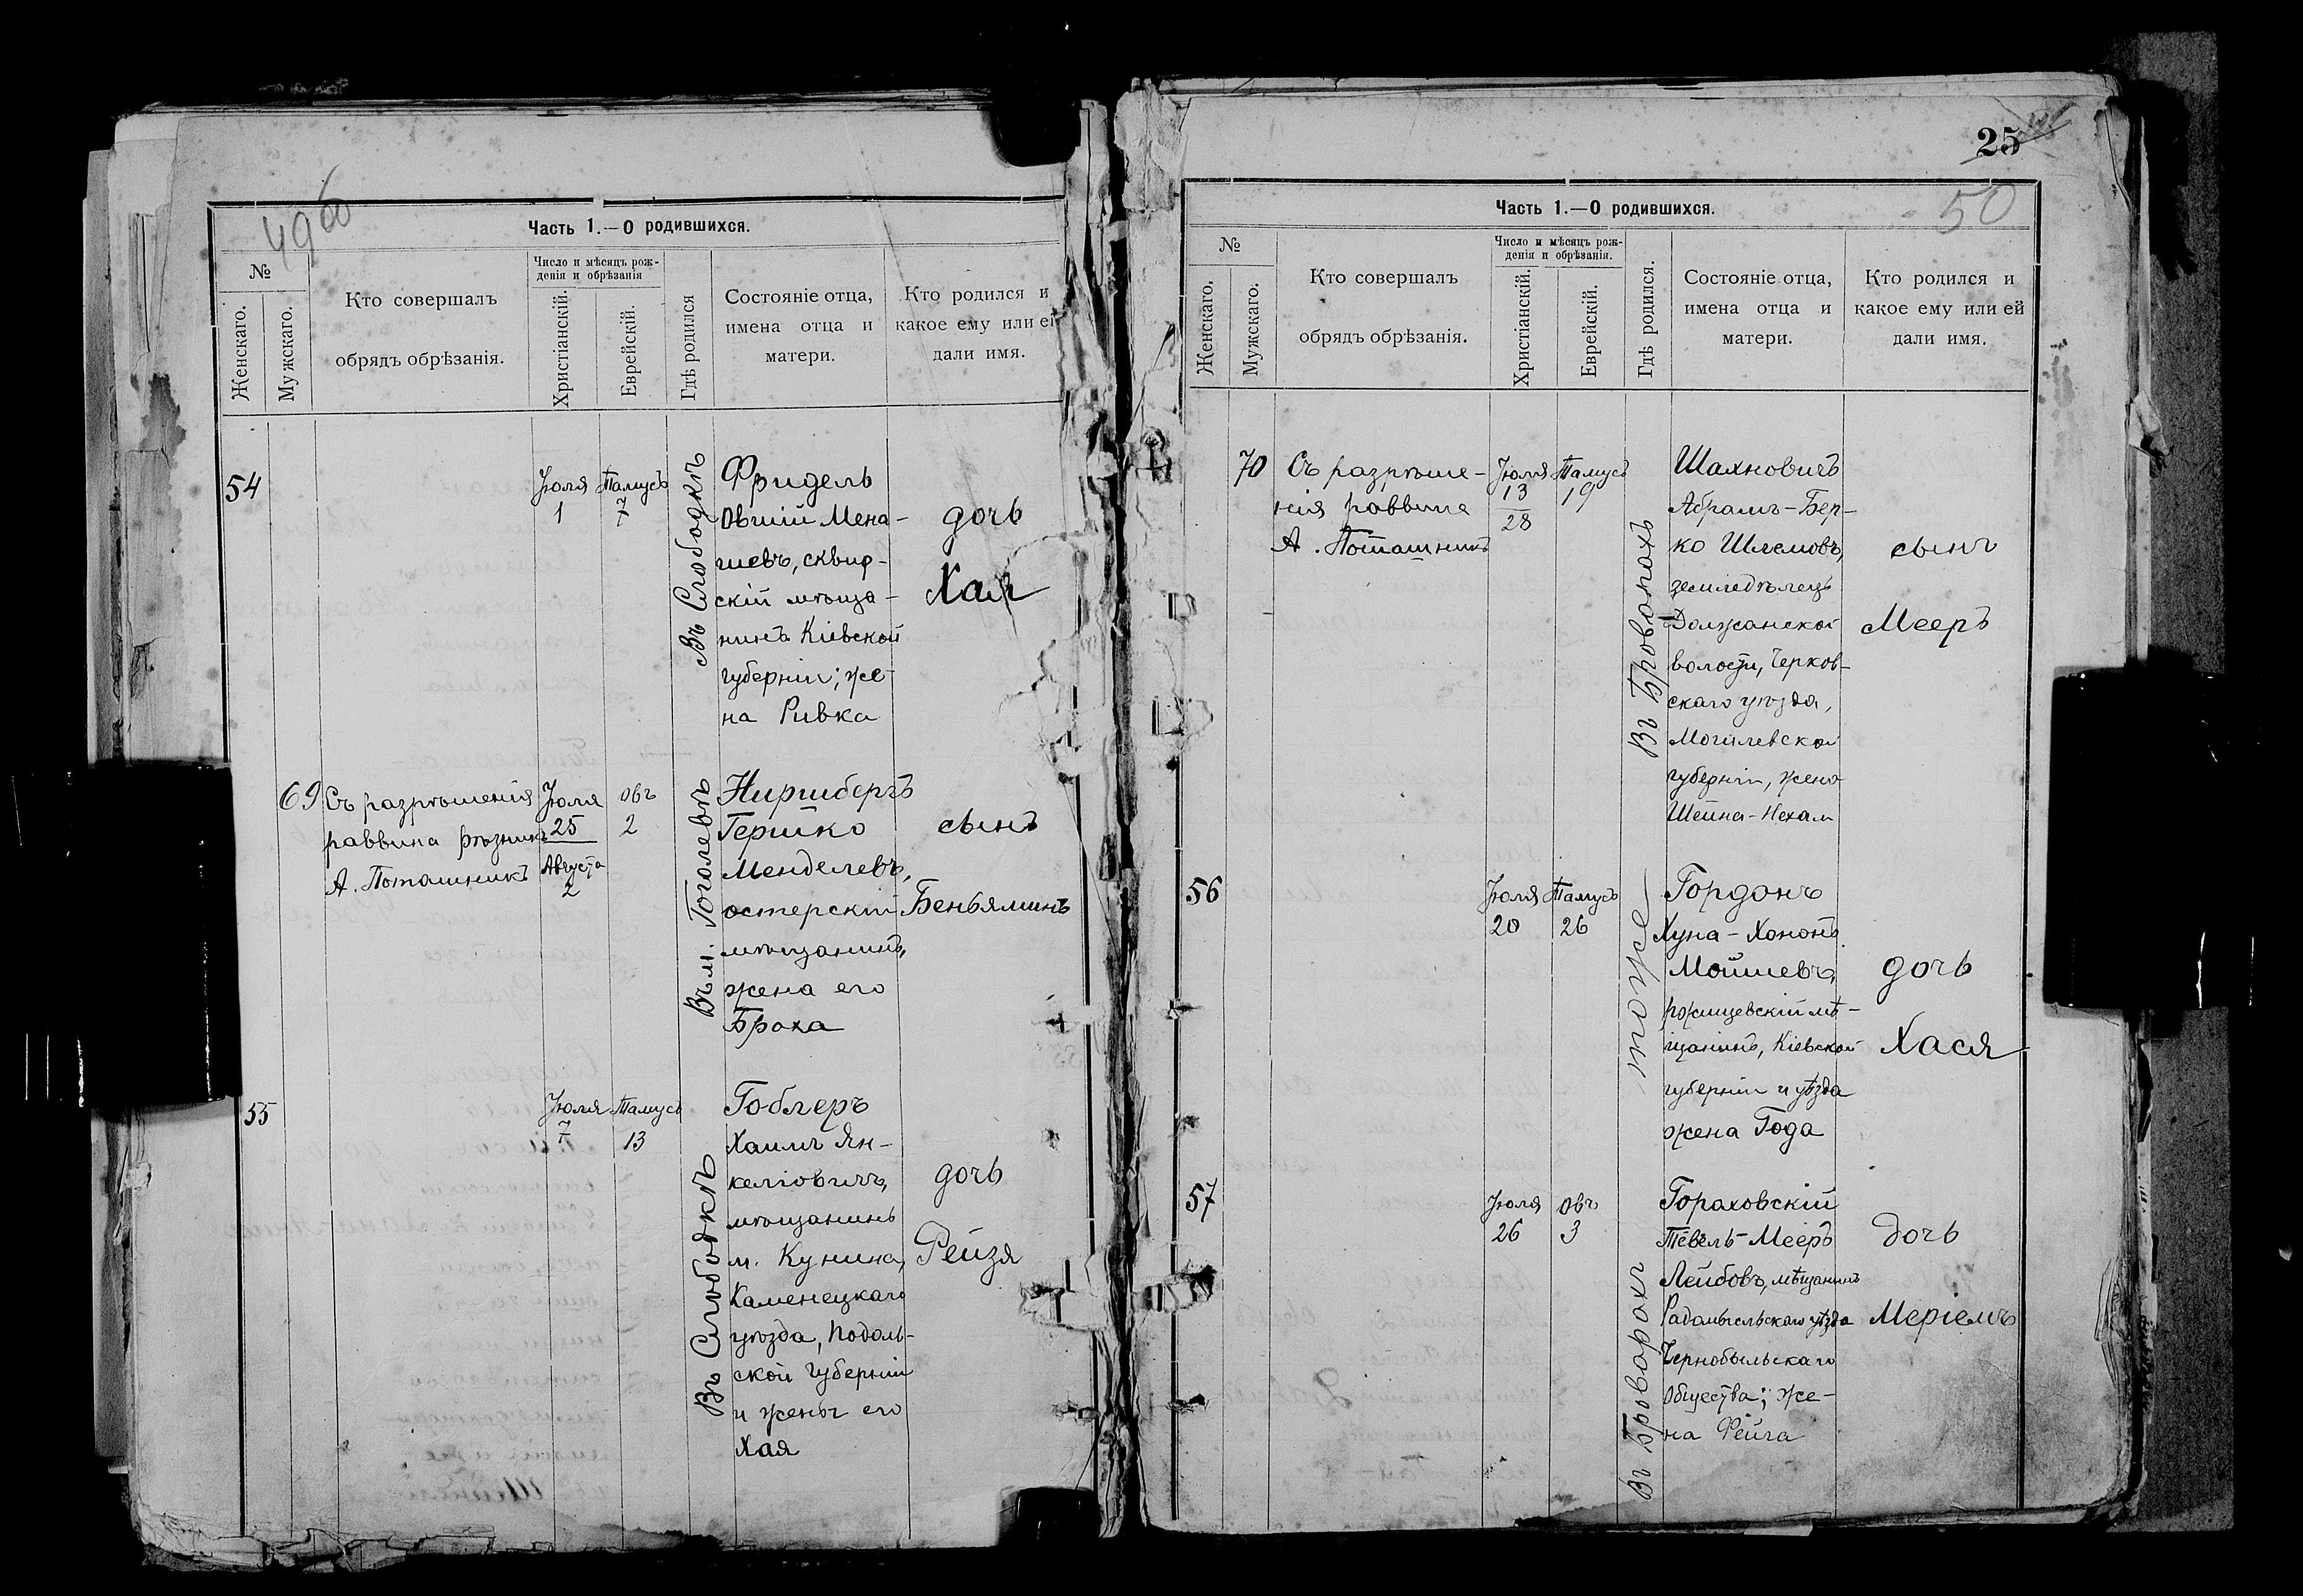 49
Часть 1.—О родившихся.
№
Женскаго.
Мужскаго.
Кто совершалъ
обрядъ обрѣзанія.
Число и мѣсяцъ рож-
денія и обрѣзанія
Христіанскій.
Еврейскій.
Гдѣ родился
Состояніе отца,
имена отца и
матери.
Кто родился и
какое ему или ей
дали имя.
54
Іюля
1
Тамусъ
7
Въ Слободкѣ
Фридель
Овшій Мена-
шевъ, сквир-
скій мѣща-
нинъ Кіевской
губерніи; же-
на Ривка
дочь
Хая
69
Съ разрѣшенія
раввина рѣзникъ
А. Поташникъ
Іюля
25
Августа
2
овъ
2
Въ м. Гоголевѣ
Ниришбергъ
Гершко
Менделевъ,
остерскій
мѣщанинъ,
жена его
Броха
сынъ
Беньяминъ
55
Іюля
7
Тамусъ
13
Въ Слободкѣ
Гоблеръ
Хаимъ Ян-
келіовичъ,
мѣщанинъ
м. Кунина,
Каменецкаго
уѣзда, Подоль-
ской губерніи
и жены его
Хая
дочь
Рейзя
25
50
Часть 1.—О родившихся.
№
Женскаго.
Мужскаго.
Кто совершалъ
обрядъ обрѣзанія.
Число и мѣсяцъ рож-
денія и обрѣзанія.
Христіанскій.
Еврейскій.
Гдѣ родился.
Состояніе отца,
имена отца и
матери.
Кто родился и
какое ему или ей
дали имя.
70
Съ разрѣше-
нія раввина
А. Поташникъ
Іюля
13
28
Тамусъ
19
Въ Броварахъ
Шахновичъ
Абрамъ-Бер-
ко Шлемовъ,
земледѣлецъ
Должанской
волости, Черков-
скаго уѣзда,
Могилевской
губерніи, жена
Шейна-Нехам
сынъ
Мееръ
56
Іюля
20
Тамусъ
26
тоже
Гордонъ
Хуна-Хононъ
Мойшевъ,
ржищевскій мѣ-
щанинъ, Кіевской
губерніи и уѣзда
жена Года
дочь
Хася
57
Іюля
26
овъ
3
Въ Броварахъ
Гораховскій
Тевель-Мееръ
Лейбовъ, мѣщанинъ
Радомысльскаго уѣзда
Чернобыльскаго
общества; же-
на Фейга
дочь
Меріемъ